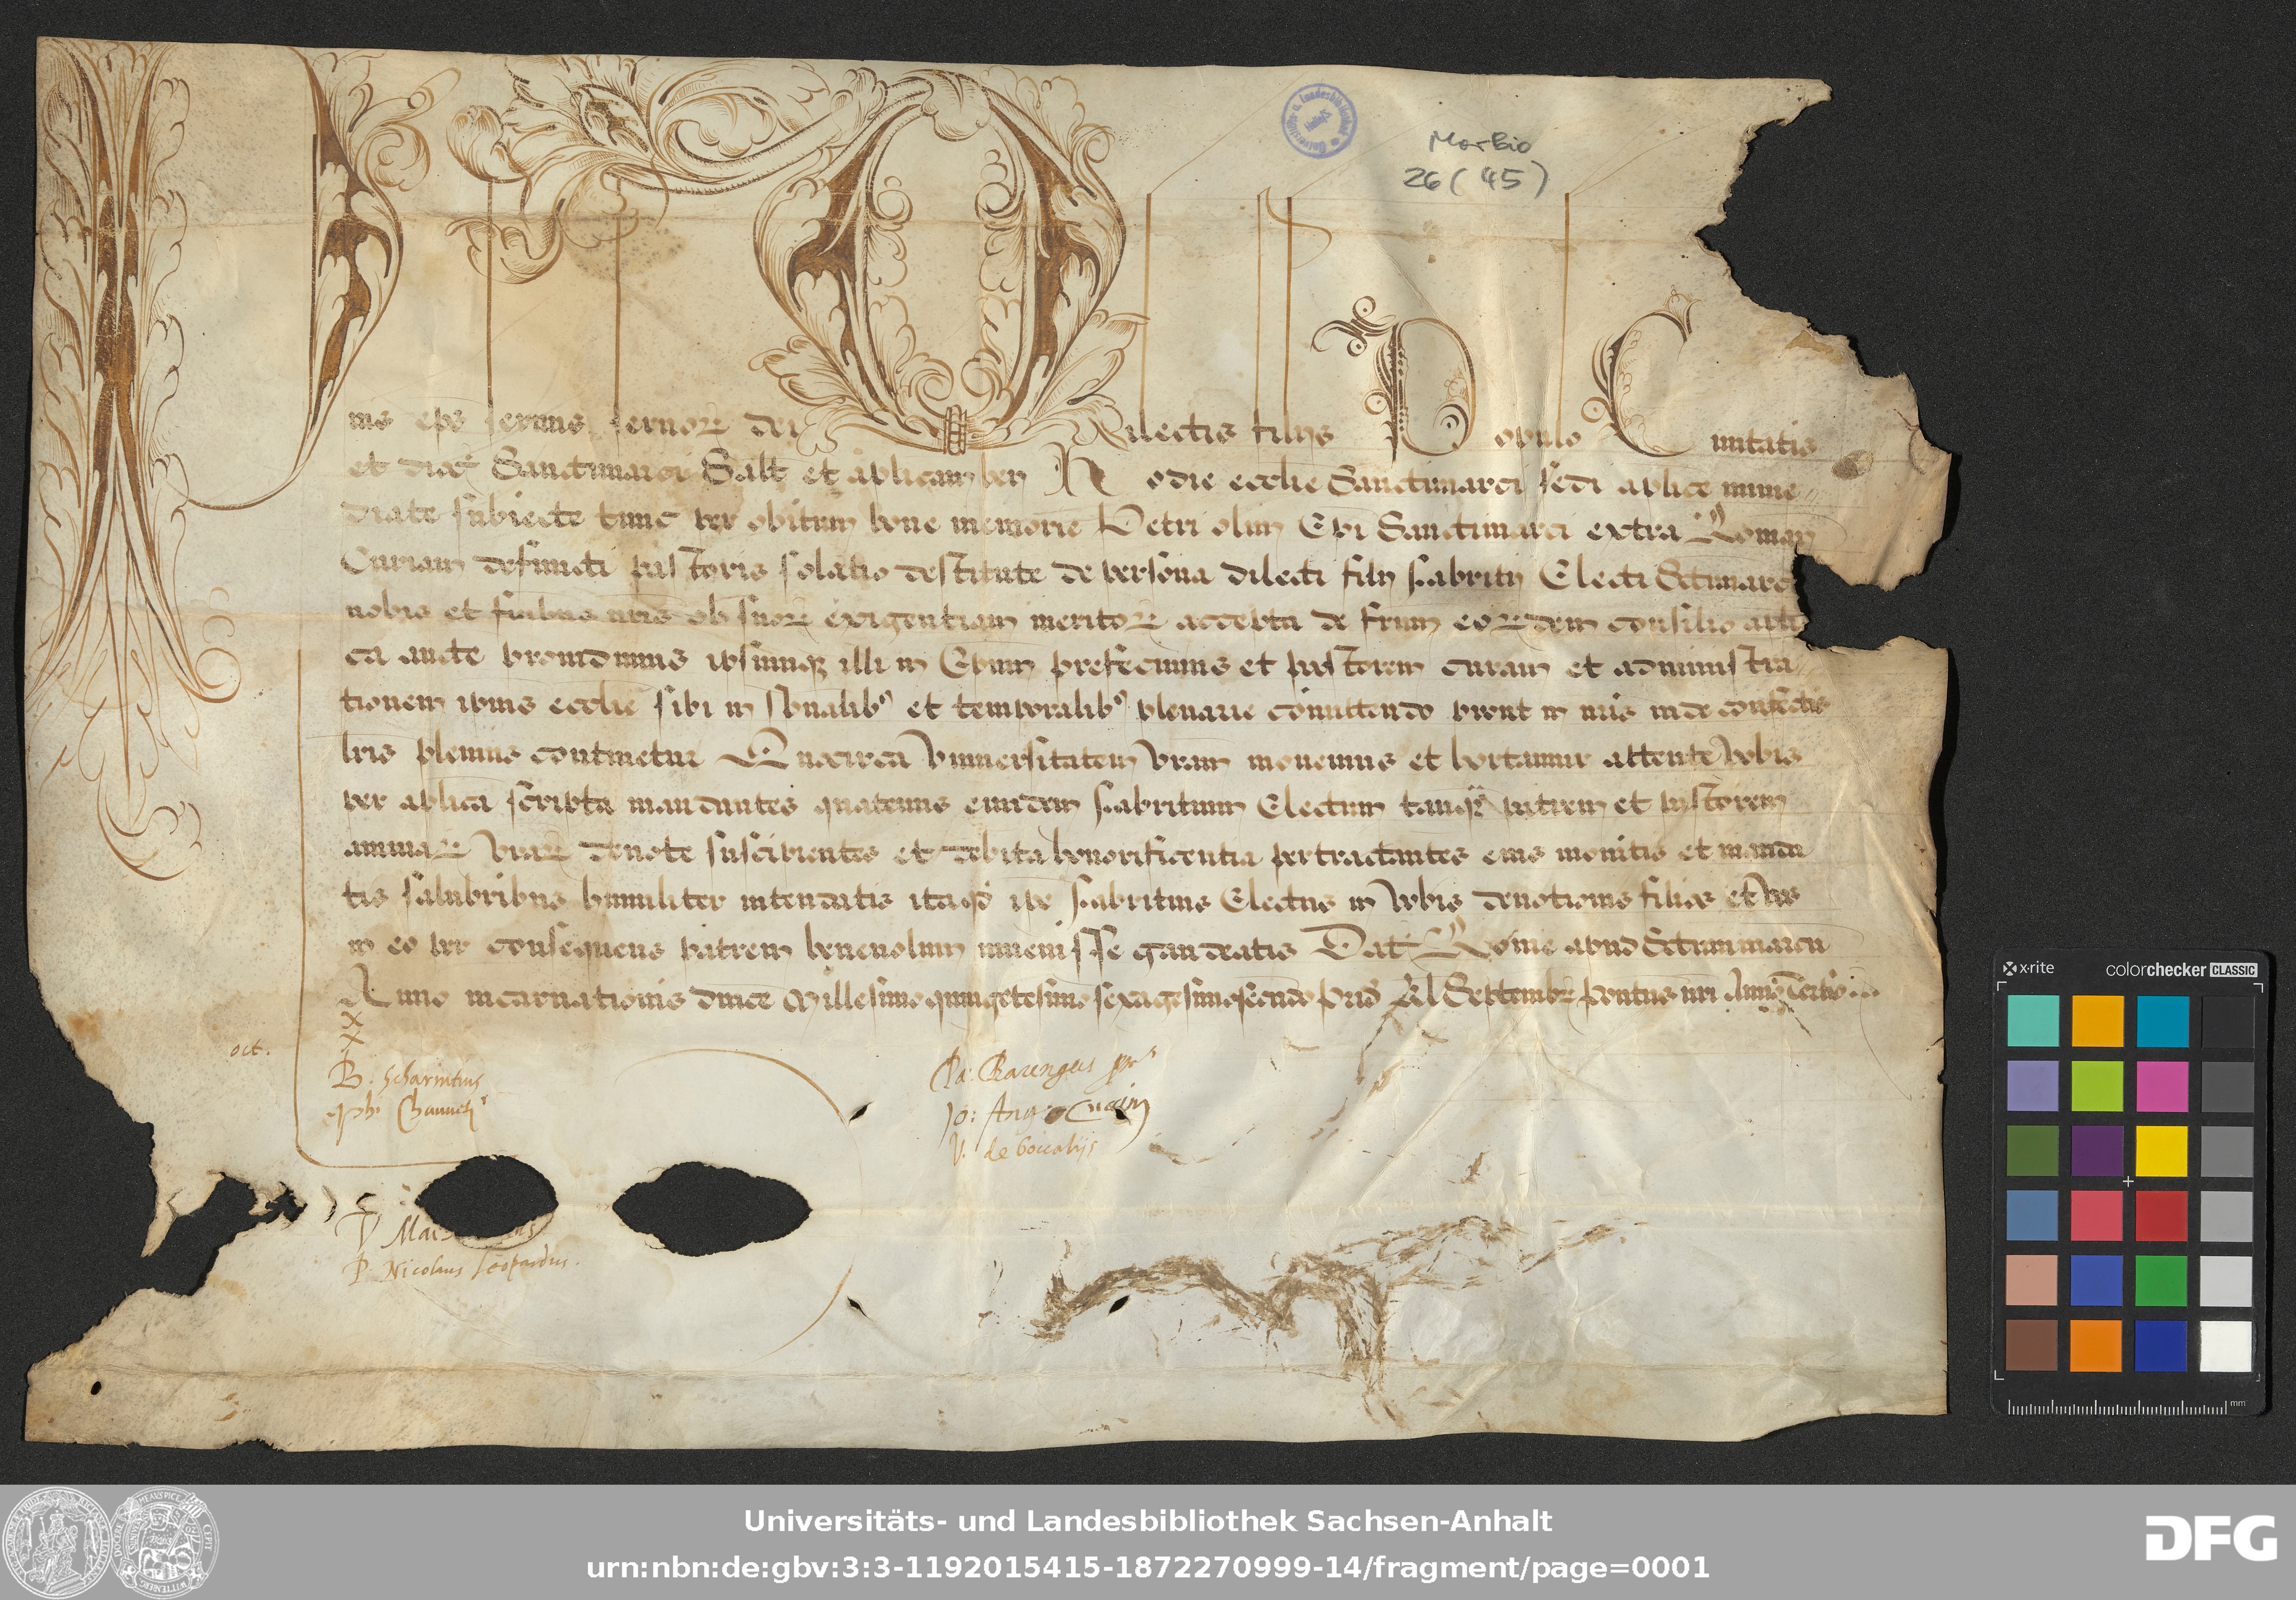 Morbio
26 (45)
ius eps seruus seruoꝝ dei Dilectis filijs Populo Ciuitatis
et dioc̄ Sanctimarci Salt et aplicam ben Hodie ecclie Sanctimarci sedi aplice imme
diate subiecte tunc per obitum bone memorie Petri olim Epi Sanctimarci extra Roman
Curiam defuncti pastoris solatio destitute de persona dilecti filij fabritij Electi Sctimarci
nobis et fratribus nris ob suoꝝ exigentiam meritoꝝ accepta de frum eoꝝdem consilio apli
ca aucte prouidimus ipsumqꝫ illi in Epum prefecimus et pastorem curam et administra
tionem ipius ecclie sibi in spualibꝰ et temporalibꝰ plenarie comittendo prout in nris inde confectis
lris plenius continetur Quocirca Vniuersitatem vram monemus et hortamur attente vobis
per aplica scripta mandantes quatenus eundem fabritium Electum tanqȝ patrem et pastorem
animaꝝ vraꝝ deuote suscipientes et debita honorificentia pertractantes eius monitis et manda
tis salubribus humiliter intendatis itaqd ipe fabritius Electus in vobis deuotionis filios et vos
in eo per consequens patrem beneuolum inuenisse gaudeatis Dat Rome apud Sctummarcu
Anno incarnationis dnice Millesimo quingetesimo sexagesimosecundo prid kl Septembꝝ pontus nri Anno Tertio
X
X
oct.
B. Scharintius
Ph. Chanueti
Pa. Barengus pr
Jo: Ang
V. de boccalijs
P. Nicolaus Leopardus.
Universitäts- und Landesbibliothek Sachsen-Anhalt
urn:nbn:de:gbv:3:3-1192015415-1872270999-14/fragment/page=0001
DFG
x-rite
colorchecker CLASSIC
mm